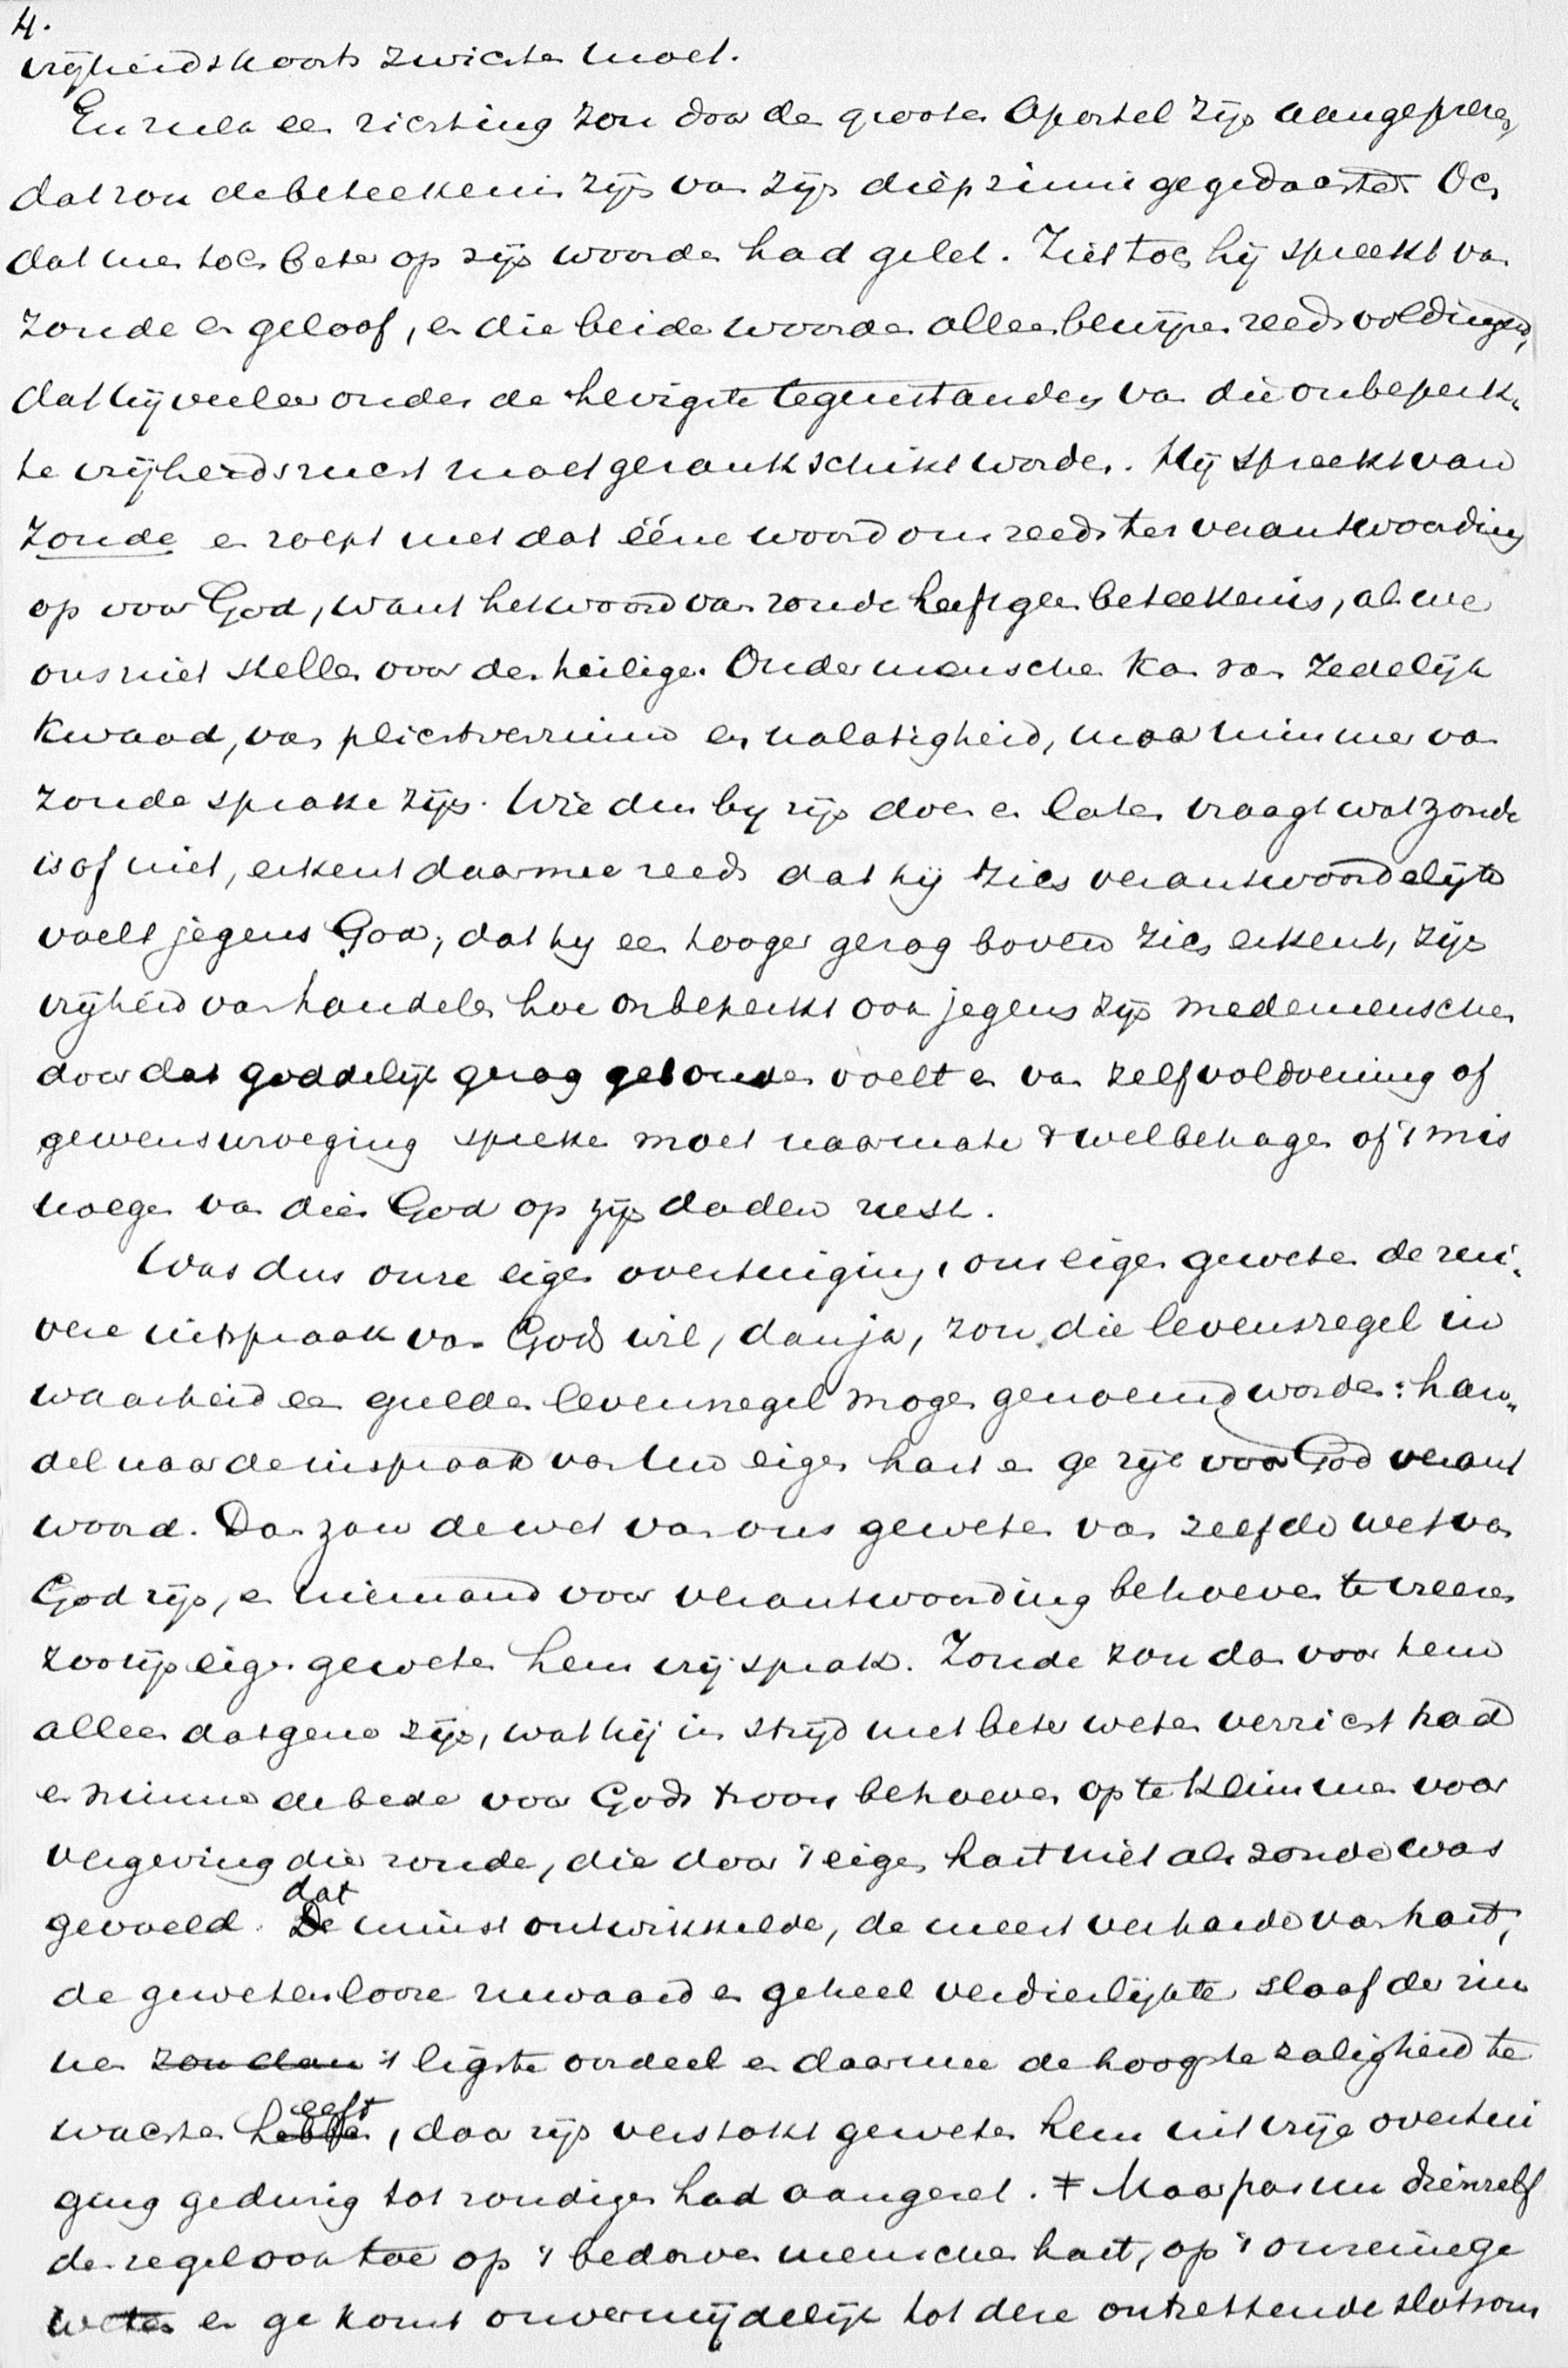 4.
vrijheidskoorts zwichten moet.
En zulk een richting zou door den grooten Apostel zijn aangeprezen,
dat zou de beteekenis zijn van zijn diepzinnige gedachten. Och
dat men toch beter op zijn woorden had gelet. Ziet toch hij spreekt van
zonde en geloof, en die beide woorden alleen bewijzen reeds voldingend,
dat hij veeleer onder de hevigste tegenstanders van die onbeperk-
te vrijheidszucht moet gerankschikt worden. Hij spreekt van
zonde en roept met dat ééne woord ons reeds ter verantwoording
op voor God, want het woord van zonde heeft geen beteekenis, als we
ons niet stellen voor den heilige. Onder menschen kan van zedelijk
kwaad, van plichtverzuim en nalatigheid, maar nimmer van
zonde sprake zijn. Wie dus bij zijn doen en laten vraagt wat zonde
is of niet, erkent daarmee reeds dat hij zich verantwoordelijk
voelt jegens God, dat hij een hooger gezag boven zich erkent, zijn
vrijheid van handelen hoe onbeperkt ook jegens zijn medemenschen
door dat goddelijk gezag gebonden voelt en van zelfvoldoening of
gewenswroeging spreken moet naarmate 't welbehagen of 't mis
noegen van dien God op zijn daden rust.
Was dus onze eigen overtuiging, ons eigen geweten de zui-
vere uitspraak van Gods wil, dan ja, zou die levensregel in
waarheid een gulden levensregel mogen genoemd worden: han-
del naar de inspraak van Uw eigen hart en ge zijt voor God verant
woord. Dan zou de wet van ons geweten van zelf de wet van
God zijn, en niemand voor verantwoording behoeven te vreezen
zoo zijn eigen geweten hem vrijsprak. Zonde zou dan voor hem
alleen datgene zijn, wat hij in strijd met beter weten verricht had
en nimmer de bede voor Gods troon behoeven op te klimmen voor
vergeving dier zonde, die door 't eigen hart niet als zonde was
gevoeld. dat De minst ontwikkelde, de meest verharde van hart,
de gewetenlooze snoodaard en geheel verdierlijkte slaaf der zin
nen zou dan 't ligste oordeel en daarmee de hoogste zaligheid te
wachten hebben eeft, daar zijn verstokt geweten hem uit vrije overtui
ging gedurig tot zondigen had aangezet. ≠ Maar pas nu dienzelf
den regel ook toe op 't bedorven menschenhart, op 't onreine ge
weten en ge komt onvermijdelijk tot deze ontzettende slotsom